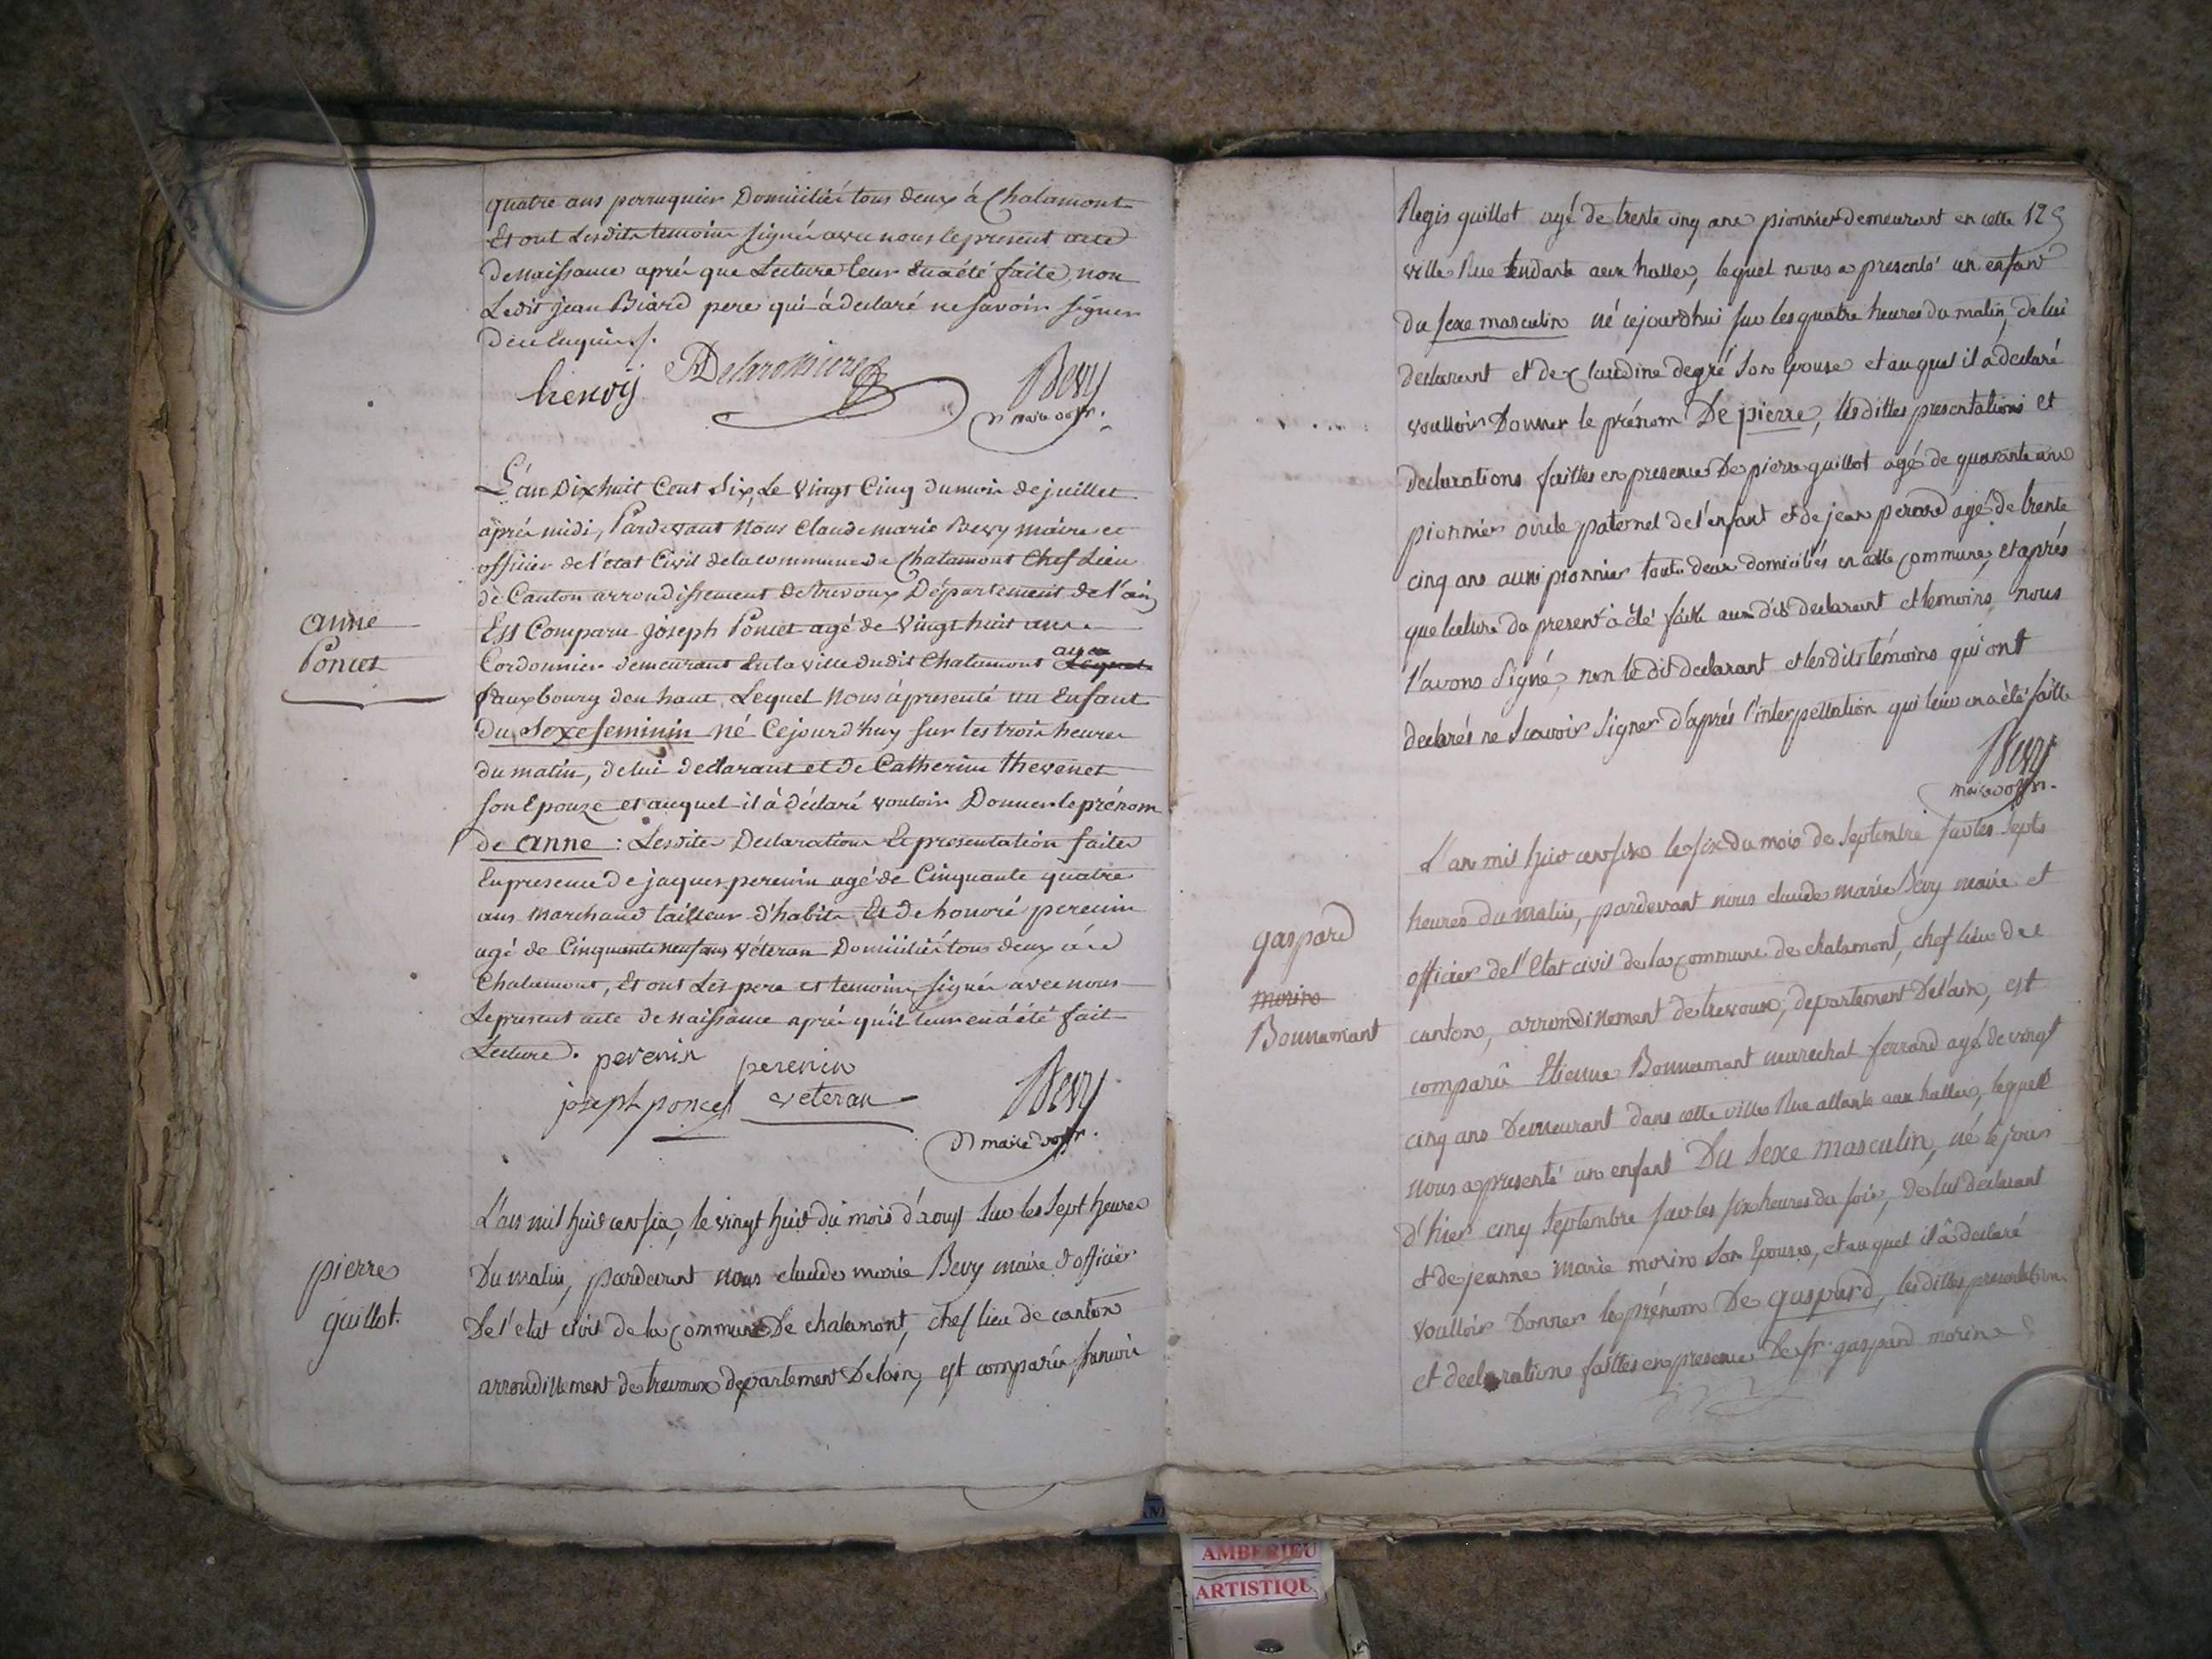 quatre ans perruquier Domicilié tous deux à Chalamont
Et ont Lesdits temoins signé avec nous le present acte
de naissance aprés que Lecture leur en a été faite, non
Ledit jean Biard pere qui à declaré ne savoir signer
de ce Enquis.
hervij
Bevy
maire off.r
L'an Dix huit Cent Six, Le Vingt Cinq du mois de juillet
aprés midi, Pardevant Nous Claude marie Bevy maire et
officier de l'état Civil de la commune de Chalamont Chef Lieu
de Canton arrondissement de trevoux Département de l'ain
anne
Poncet
Est Comparu joseph Poncet agé de Vingt huit ans
Cordonnier demeurant en la ville dudit Chalamont au Lequel
fauxbourg d'en haut, Lequel Nous à presenté un Enfant
du Sexe feminin né Cejourd'huy sur les trois heures
du matin, de lui declarant et de Catherine thevenet
son Epouze et auquel il à déclaré vouloir Donner le prénom
de anne : Lesdites Declarations Et presentation faites
En presence de jaques perenin agé de Cinquante quatre
ans Marchand tailleur d'habits Et de honoré perenin
agé de Cinquante neuf ans Véteran Domicilié tous deux à
Chalamont, Et ont Les pere et temoins signé avec nous
Le present acte de Naissance aprés qu'il leur en à été fait
Lecture.
perenin
perenin
joseph poncet
veteran
Bevy
maire off.r
pierre
guillot.
L'an mil huit cent six, le vingt huit du mois d'aoust sur les sept heures
Du matin, pardevant nous claude marie Bevy maire & officier
De l'etat civil de la commune De chalamont, chef lieu de canton
arrondissement de trevoux departement De l'ain, est comparu francois
Regis guillot agé de trente cinq ans pionnier demeurant en cette 125
ville Rue tendante aux halles, lequel nous a presenté un enfant
du sexe masculin né cejourdhui sur les quatre heures du matin, de lui
declarant et de claudine degré son Epouse et auquel il à declaré
voulloir Donner le prénom De pierre, lesdittes presentations et
declarations faittes en presence De pierre guillot agé de quarante ans
pionnier oncle paternel de l'enfant et de jean perard agé de trente
cinq ans aussi pionnier tout deux domiciliés en cette commune, et aprés
que lecture du present à été faite aux dis declarant et témoins, nous
l'avons signé, non le dit declarant et lesdits témoins qui ont
declarés ne scavoir signer d'aprés l'interpellation qui leur en a été faitte
Bevy
maire off.r
gaspard
morin
Bonnamant
L'an mil huit cent six le six du mois de Septembre sur les Septs
heures du matin, pardevant nous claude marie Bevy maire et
officier de l'Etat civil de la commune de chalamont, chef lieu de
canton, arrondissement de trevoux, departement De l'ain, est
comparu Etienne Bonnamant marechal ferrand agé de vingt
cinq ans Demeurant dans cette ville Rue allante aux halles, lequel
nous a presenté un enfant Du Sexe masculin, né le jour
d'hier cinq Septembre sur les six heures du soir, de lui declarant
et de jeanne marie morin son Epouse, et auquel il à declaré
voulloir Donner le prénom De gaspard, lesdittes presentation
et declarations faittes en presence De sr. gaspard morin
AMBERIEU
ARTISTIQU